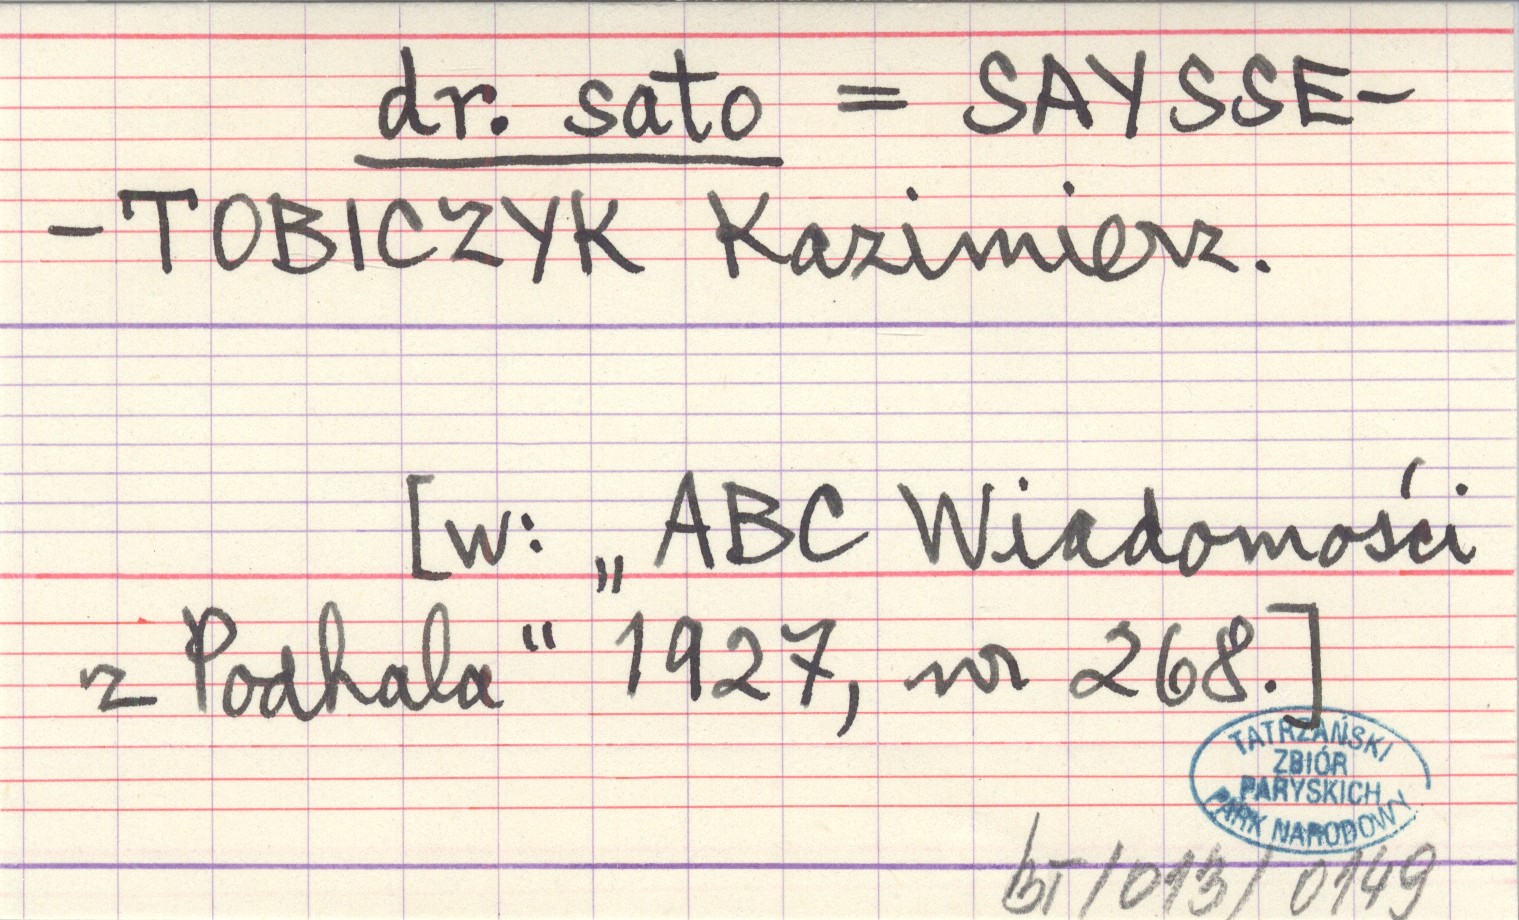 dr. sato = SAYSSE-
-TOBICZYK Kazimierz.
[w: „ABC Wiadomości
z Podhala“ 1927, nr 268.]
TATRZAŃSKI
ZBIÓR
PARYSKICH
PARK NARODOWY
bT/013/0149